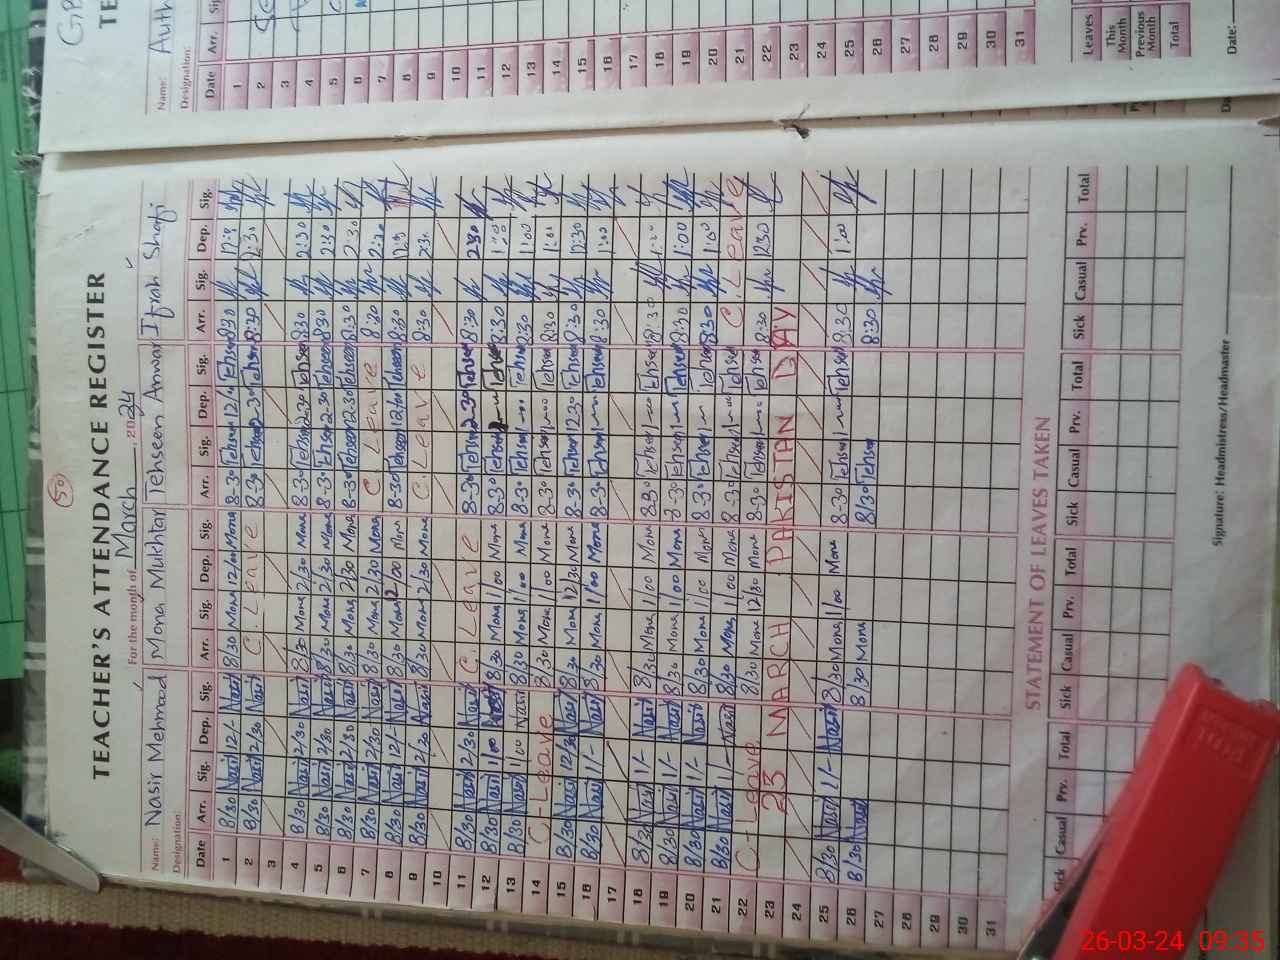 50
TEACHER'S ATTENDANCE REGISTER
For the month of March, 2024
Name: Nasir Mehmood Mona Mukhtar Tehseen Anwar Ifrah Shafi
Designation:
Date Arr. Sig. Dep. Sig. Arr. Sig. Dep. Sig. Arr. Sig. Dep. Sig. Arr. Sig. Dep. Sig.
1 8/30 Nasir 12/- Nasir 8/30 Mona 12/00 Mona 8-30 Tehseen Tehseen 8:30
2 8/30 Nasir 2/30 Nasir C. Leave 8-30 Tehseen 2-30 Tehseen 8:30 2:30
3
4 8/30 Nasir 2/30 Nasir 8/30 Mona 2/30 Mona 8-30 Tehseen 2-30 Tehseen 8:30 2:30
5 8/30 Nasir 2/30 Nasir 8/30 Mona 2/30 Mona 8-30 Tehseen 2-30 Tehseen 8:30 2:30
6 8/30 Nasir 2/30 Nasir 8/30 Mona 2/30 Mona 8-30 Tehseen 2-30 Tehseen 8:30 2:30
7 8/30 Nasir 2/30 Nasir 8/30 Mona 2/30 Mona C. Leave 8:30 2:30
8 8/30 Nasir 12/- Nasir 8/30 Mona 12/00 Mona 8-30 Tehseen 12/00 Tehseen 8:30
9 8/30 Nasir 2/30 Nasir 8/30 Mona 2/30 Mona C. Leave 8:30 2:30
10
11 8/30 Nasir 2/30 Nasir C. Leave 8-30 Tehseen 2-30 Tehseen 8:30 2:30
12 8/30 Nasir 1/00 Nasir 8/30 Mona 1/00 Mona 8-30 Tehseen Tehseen 8:30 1:00
13 8/30 Nasir 1/00 Nasir 8/30 Mona 1/00 Mona 8-30 Tehseen 1-00 Tehseen 8:30 1:00
14 C-Leave 8/30 Mona 1/00 Mona 8-30 Tehseen 1-00 Tehseen 8:30 1:00
15 8/30 Nasir 12/30 Nasir 8/30 Mona 12/30 Mona 8-30 Tehseen 12-30 Tehseen 8:30 12:30
16 8/30 Nasir 1/- Nasir 8/30 Mona 1/00 Mona 8-30 Tehseen 1-00 Tehseen 8:30 1:00
17
18 8/30 Nasir 1/- Nasir 8/30 Mona 1/00 Mona 8-30 Tehseen 1-00 Tehseen 8:30 1:00
19 8/30 Nasir 1/- Nasir 8/30 Mona 1/00 Mona 8-30 Tehseen Tehseen 8:30 1:00
20 8/30 Nasir 1/- Nasir 8/30 Mona 1/00 Mona 8-30 Tehseen Tehseen 8:30 1:00
21 8/30 Nasir 1/- Nasir 8/30 Mona 1/00 Mona 8-30 Tehseen 1-00 Tehseen C. Leave
22 C-Leave 8/30 Mona 12/30 Mona 8-30 Tehseen Tehseen 8:30 12:30
23 23 MARCH PAKISTAN DAY
24
25 8/30 Nasir 1/- Nasir 8/30 Mona 1/00 Mona 8-30 Tehseen 1-00 Tehseen 8:30 1:00
26 8/30 Nasir 8/30 Mona 8/30 Tehseen 8:30
27
28
29
30
31
STATEMENT OF LEAVES TAKEN
Sick Casual Prv. Total Sick Casual Prv. Total Sick Casual Prv. Total Sick Casual Prv. Total
Signature: Headmistress/Headmaster
Name: Auth
Designation:
Date Arr.
1
2
3
4
5
6
7
8
9
10
11
12
13
14
15
16
17
18
19
20
21
22
23
24
25
26
27
28
29
30
31
Leaves
This Month
Previous Month
Total
Date:
26-03-24 09:35